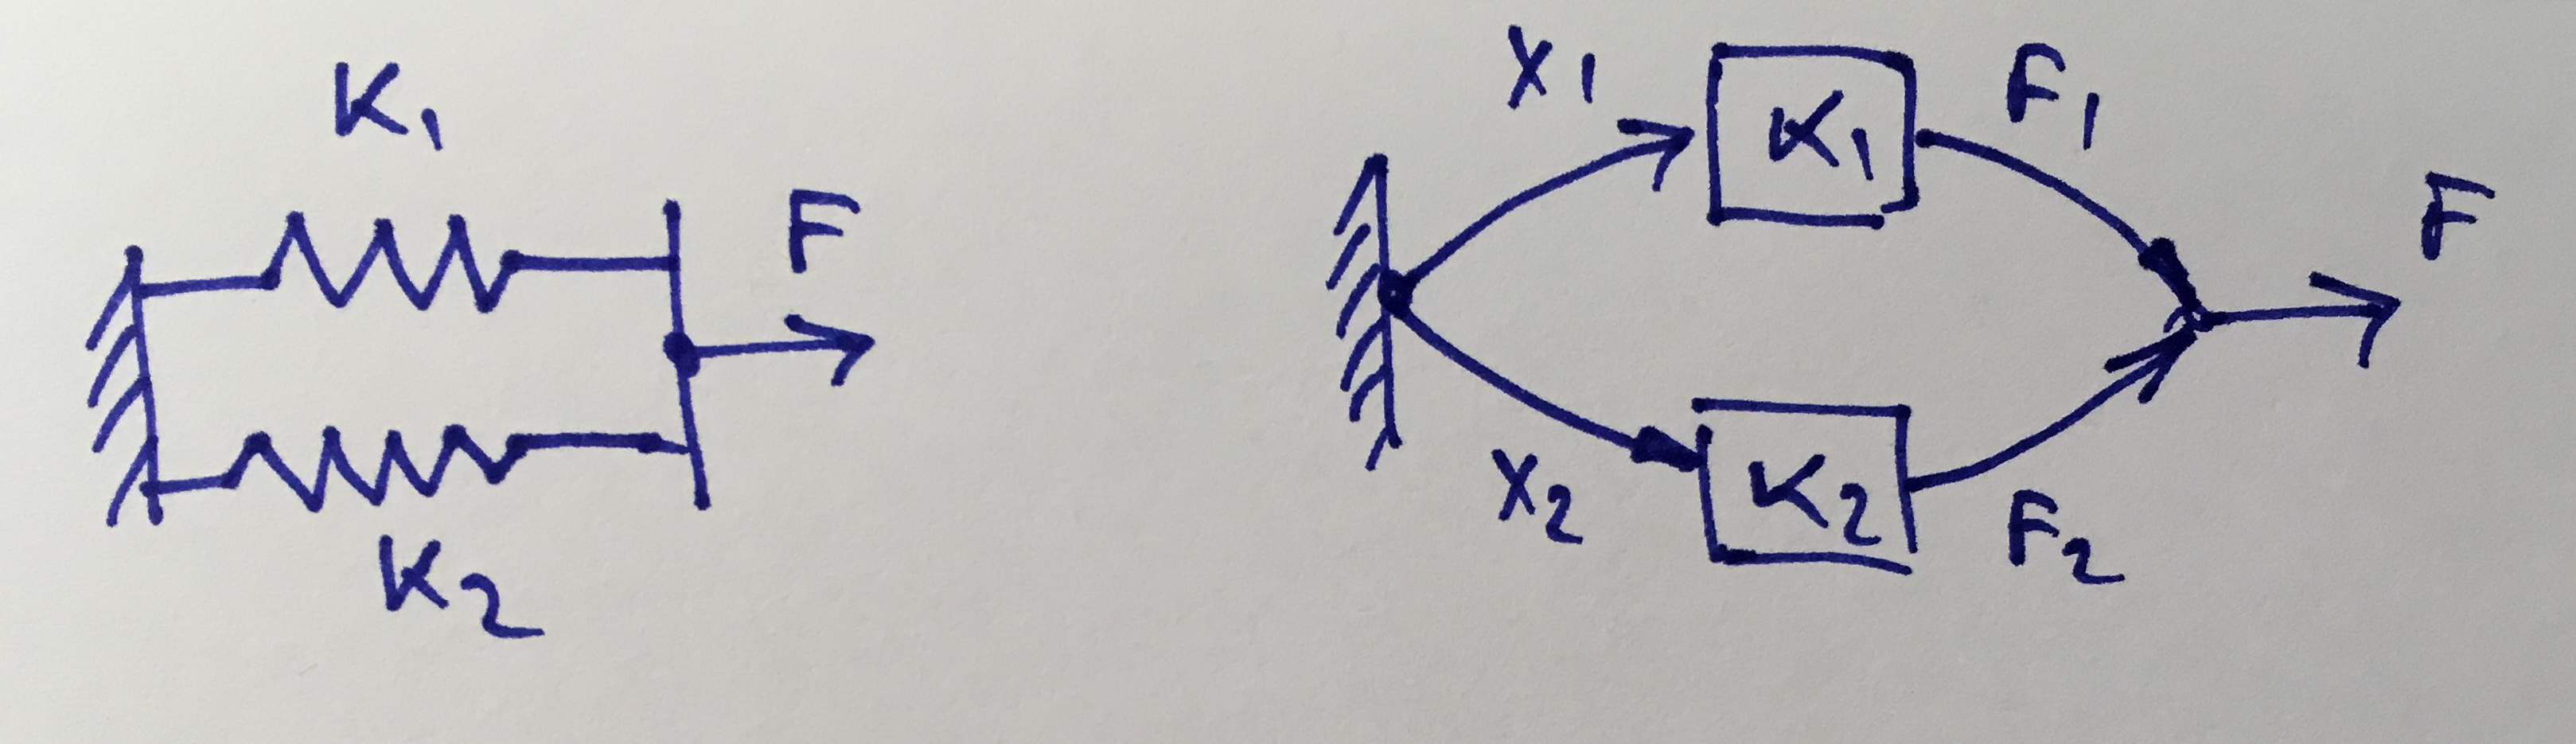 K1
F
K2
X1
K1
F1
F
X2
K2
F2